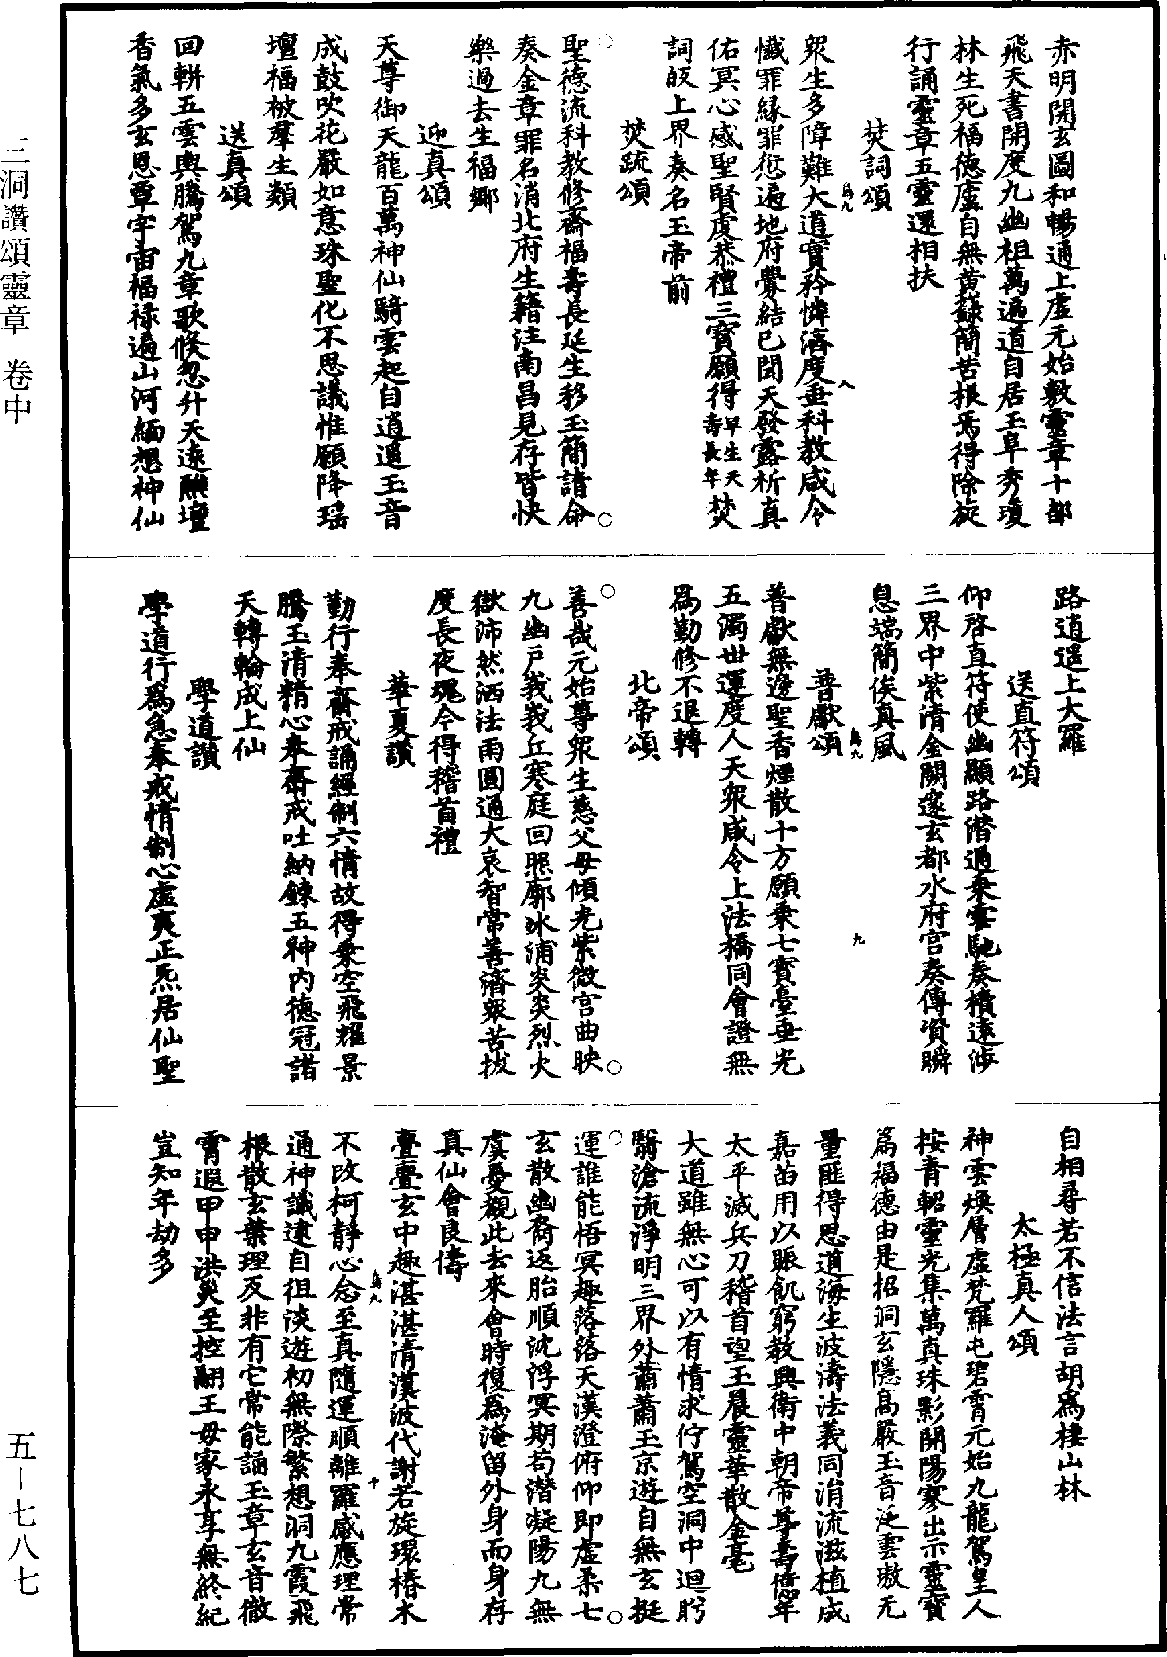 赤明開玄圖和暢通上虛元始敷靈章十部
飛天書開度九幽祖萬遍道自居玉阜秀瓊
林生死福德廬自無黃籙簡苦根焉得除旋
行誦靈章五靈還相扶
焚詞頌
眾生多障難大道實矜憐濟度垂科教咸令
懺罪緣罪愆遍地府釁結已聞天發露祈真
佑冥心感聖賢虔恭禮三寶願得早生天壽長年焚
詞皈上界奏名玉帝前
焚疏頌
聖德流科教修齋福壽長延生移玉簡請命
奏金章罪名消北府生籍注南昌見存皆快
樂過去生福鄉
迎真頌
天尊御天龍百萬神仙騎雲起自逍遙玉音
成鼓吹花嚴如意珠聖化不思議惟願降瑤
壇福被羣生類
送真頌
回軿五雲輿騰駕九章歌倏忽升天遠醮壇
香氣多玄恩覃宇宙福祿遍山河緬想神仙
路逍遥上大羅
送直符頌
仰啓直符使幽顯路潛通乘雲馳奏櫝遠涉
三界中紫清金闕邃玄都水府宮奏傳須瞬
息端簡俟真風
普獻頌
普獻無邊聖香煙散十方願乘七寶臺垂光
五濁世運度人天眾咸令上法橋同會證無
為勤修不退轉
北帝頌
善哉元始尊眾生慈父母傾光紫微宮曲映
九幽戶峩峩丘寒庭回照廓冰浦炎炎烈火
獄沛然洒法雨圓通大哀智常善濟眾苦拔
度長夜魂今得稽首禮
華夏讚
勤行奉齋戒誦經制六情故得乘空飛耀景
騰玉清精心奉齋戒吐納鍊五神內德冠諸
天轉輪成上仙
學道讚
學道行為急奉戒情制心虛夷正炁居仙聖
自相尋若不信法言胡為棲山林
太極真人頌
神雲煥層虛梵羅屯碧霄元始九龍駕皇人
按青軺靈光集萬真珠影開陽寥出示靈寶
篇福德由是招洞玄隱高嚴玉音泛雲璈元
量匪得思道海生波濤法義同涓流滋植成
嘉苗用以賑飢窮教興衛中朝帝尊壽億年
太平滅兵刀稽首望玉晨靈華散金毫
大道雖無心可以有情求佇駕空洞中迴盻
翳滄流淨明三界外蕭蕭玉京遊自無玄挺
運誰能悟冥趣落落天漢澄俯仰即虛柔七
玄散幽裔返胎順沈浮冥期苟潛凝陽九無
虞憂觀此去來會時復為淹留外身而身存
真仙會良儔
亹亹玄中趣湛湛清漢波代謝若旋環椿木
不改柯靜心念至真隨運順離羅感應理常
通神識遠自徂淡遊初無際繁想洞九霞飛
根散玄葉理反非有它常能誦玉章玄音徹
霄遐甲申洪災至控翮王母家永享無終紀
豈知年劫多
三洞讚頌靈章　卷中
五－七八七